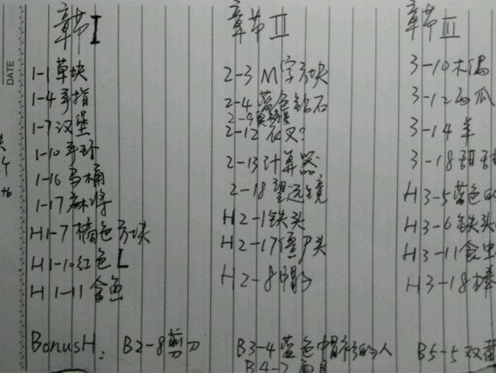 DATE
章节I
1-1草块
1-4手指
1-7汉堡
1-10手环
1-16马桶
1-17麻将
H1-7橘色方块
H1-10红色L
H1-11金鱼
章节II
2-3 M字方块
2-4蓝色钻石
2-9
2-12衣叉?
2-13计算器
2-18望远镜
H2-1铁头
H2-17僵尸头
H2-8帽子
章节III
3-10木偶
3-12西瓜
3-14羊
3-18甜甜
H3-5蓝色
H3-6铁头
H3-11食虫
H3-18棒
BonusH: B2-8剪刀
B3-4蓝色帽子的人
B5-5双
B4-2面具